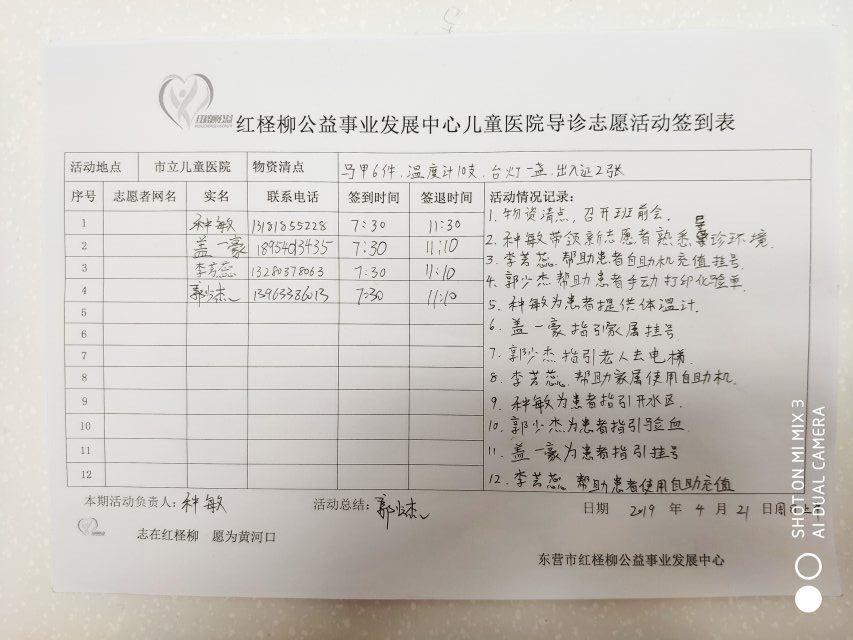 红柽柳公益事业发展中心儿童医院导诊志愿活动签到表
活动地点 市立儿童医院 物资清点 马甲6件、温度计10支、台灯一盏、出入证2张
序号 志愿者网名 实名 联系电话 签到时间 签退时间 活动情况记录:
1 种敏 13181855228 7:30 11:30
2 盖一豪 18954013435 7:30 11:10
3 李芳蕊 13280378063 7:30 11:10
4 郭少杰 13963386013 7:30 11:10
5
6
7
8
9
10
11
12
1.物资清点、召开班前会.
2.种敏带领新志愿者熟悉导诊环境.
3.李芳蕊.帮助患者自助机充值挂号.
4.郭少杰帮助患者手动打印化验单.
5.种敏为患者提供体温计.
6.盖一豪指引家属挂号.
7.郭少杰指引老人去电梯.
8.李芳蕊.帮助家属使用自助机.
9.种敏为患者指引开水区.
10.郭少杰为患者指引验血.
11.盖一豪为患者指引挂号
12.李芳蕊 帮助患者使用自助充值
本期活动负责人:种敏 活动总结:郭少杰 日期 2019 年 4 月 21 日周
志在红柽柳 愿为黄河口
东营市红柽柳公益事业发展中心
SHOT ON MI MIX 3
AI DUAL CAMERA